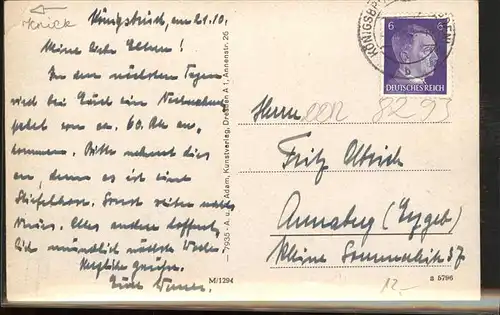 Knick
Königsbrück, am 21.10.
Meine lieben Eltern!
In den nächsten Tagen
wird bei Euch ein Nachnahme-
paket von ca. 60.- Mk an-
kommen. Bitte nehmt dies
an, denn es ist eine
Stiefelhose. Sonst weiter nichts
Neues. Alles andere hoffent-
lich mündlich nächste Woche.
Herzliche Grüße
Euer
7935 - A. u. R. Adam, Kunstverlag, Dresden A 1, Annenstr. 26
M/1294
KÖNIGSBR
6 6
DEUTSCHES REICH
Herrn
8293
Fritz Ulbrich
Annaberg (Erzgeb)
Kleine Sommerleite 37
a 5796
12.-